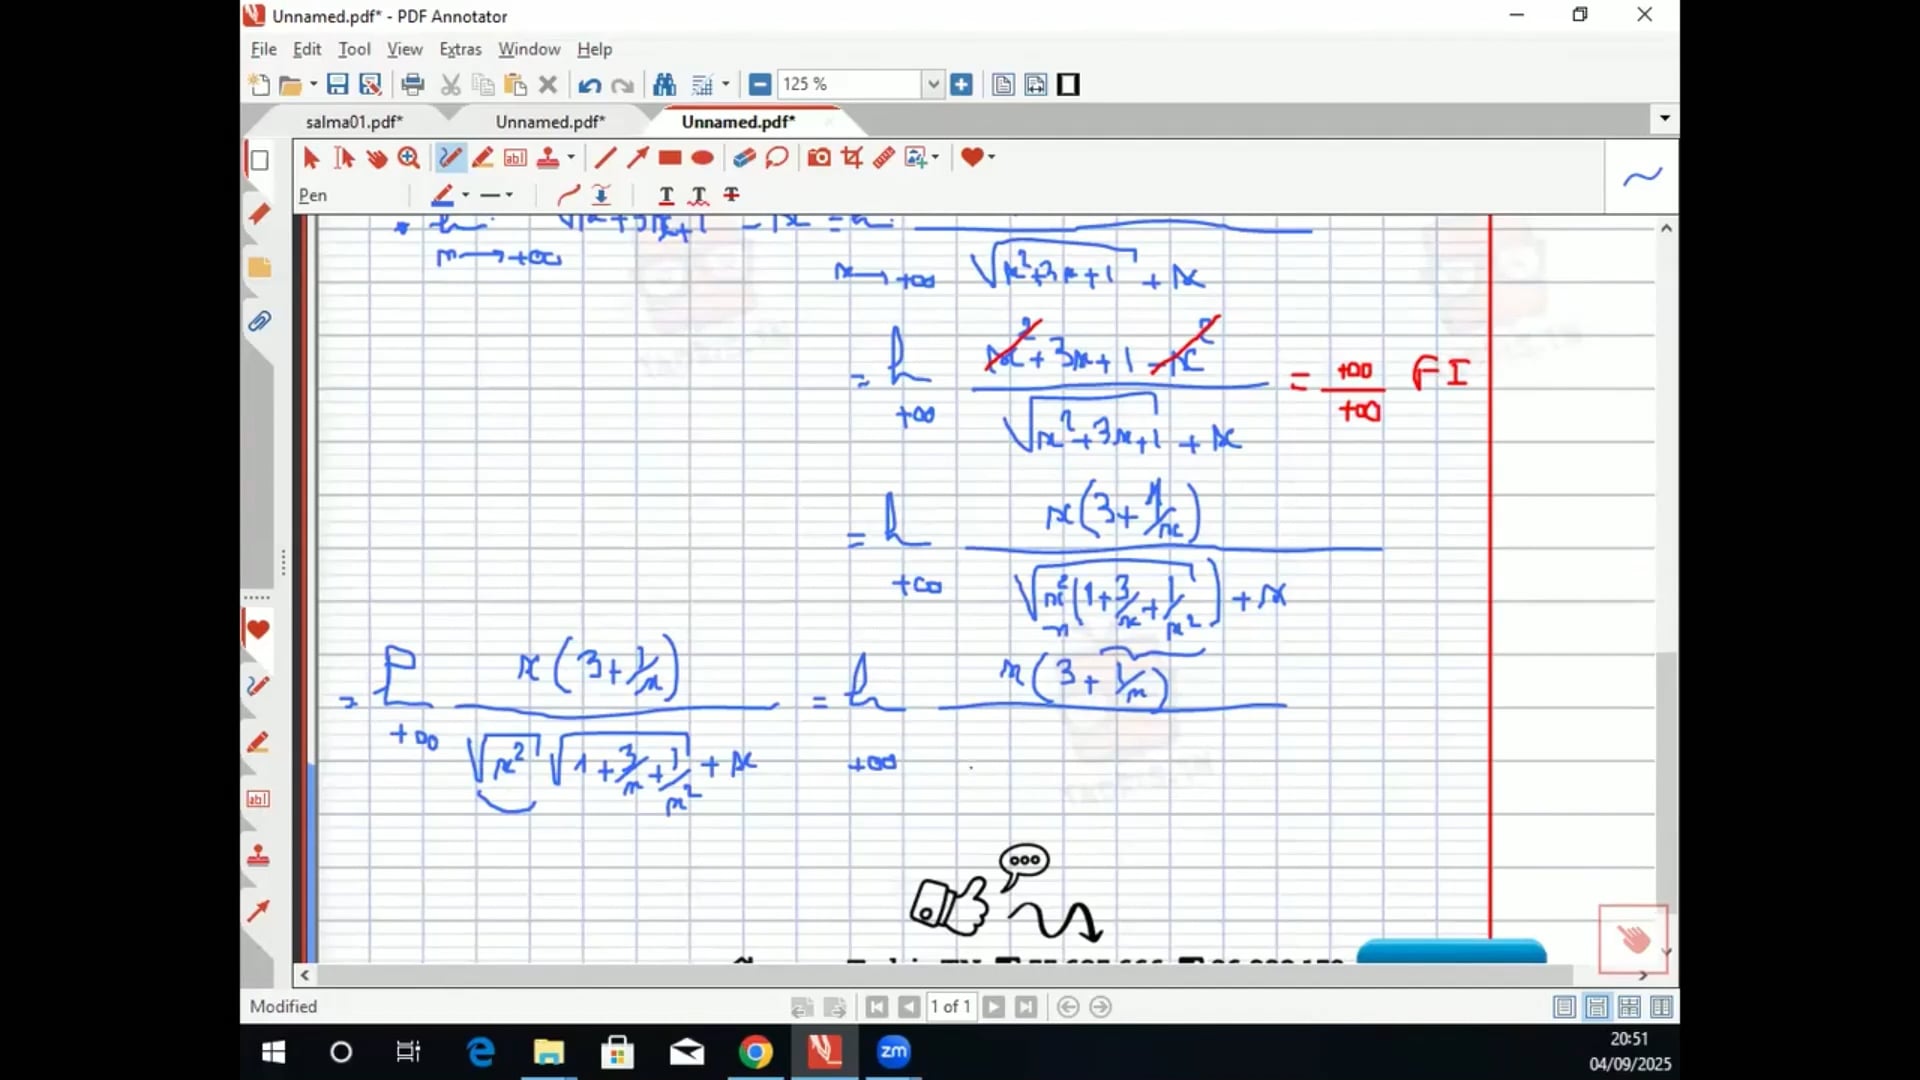 Unnamed.pdf* - PDF Annotator
File Edit Tool View Extras Window Help
125 %
salma01.pdf* Unnamed.pdf* Unnamed.pdf*
Pen
x→+∞ x→+∞ √(x²+3x+1) + x
= lim +∞ (x² + 3x + 1 - x²) / (√(x²+3x+1) + x) = +∞/+∞ FI
= lim +∞ x(3 + 1/x) / (√(x²(1 + 3/x + 1/x²)) + x)
= lim +∞ x(3 + 1/x) / (√x² √(1 + 3/x + 1/x²) + x) = lim +∞ x(3 + 1/x)
Modified
1 of 1
20:51
04/09/2025